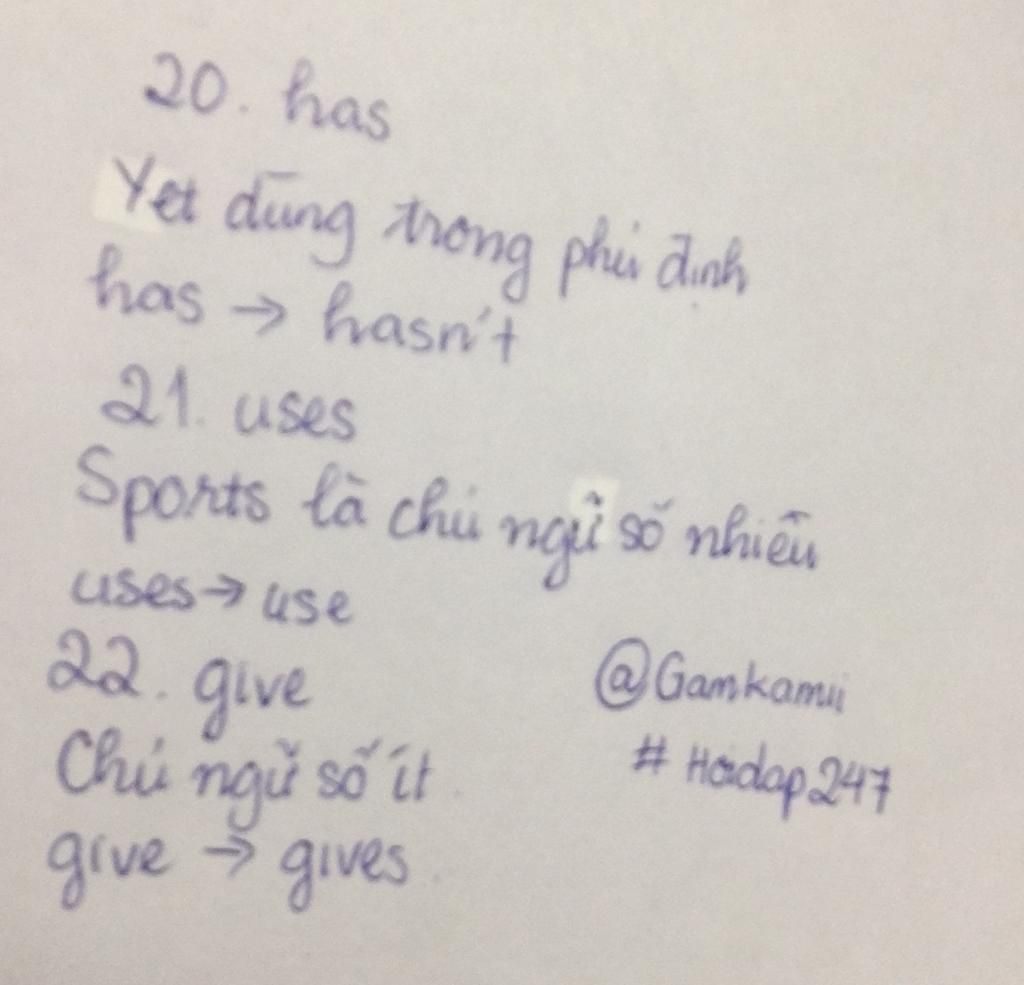 20. has
Yet dùng trong phủ định
has → hasn't
21. uses
Sports là chủ ngữ số nhiều
uses → use
22. give
Chủ ngữ số ít
give → gives
@Gamkamii
# Hoidap247